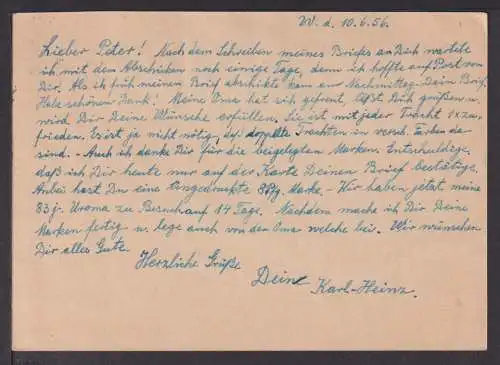 W. d. 10.6.56.
Lieber Peter! Nach dem Schreiben meines Briefes an Dich wartete
ich mit dem Abschicken noch einige Tage, denn ich hoffte auf Post von
Dir. Als ich früh meinen Brief abschickte kam am Nachmittag Dein Brief.
Habe schönen Dank! Meine Oma hat sich gefreut, läßt Dich grüßen u.
wird Dir Deine Wünsche erfüllen. Sie ist mit jeder Tracht 1x zu-
frieden. Es ist ja nicht nötig, daß doppelte Trachten in versch. Farben da
sind. - Auch ich danke Dir für die beigelegten Marken. Entschuldige,
daß ich Dir heute nur auf der Karte Deinen Brief bestätige.
Anbei hast Du eine eingedruckte 8 Pfg. Marke. - Wir haben jetzt meine
83 j. Uroma zu Besuch auf 14 Tage. Nachdem mache ich Dir Deine
Marken fertig u. lege auch von der Oma welche bei. Wir wünschen
Dir alles Gute.
Herzliche Grüße
Dein
Karl-Heinz.